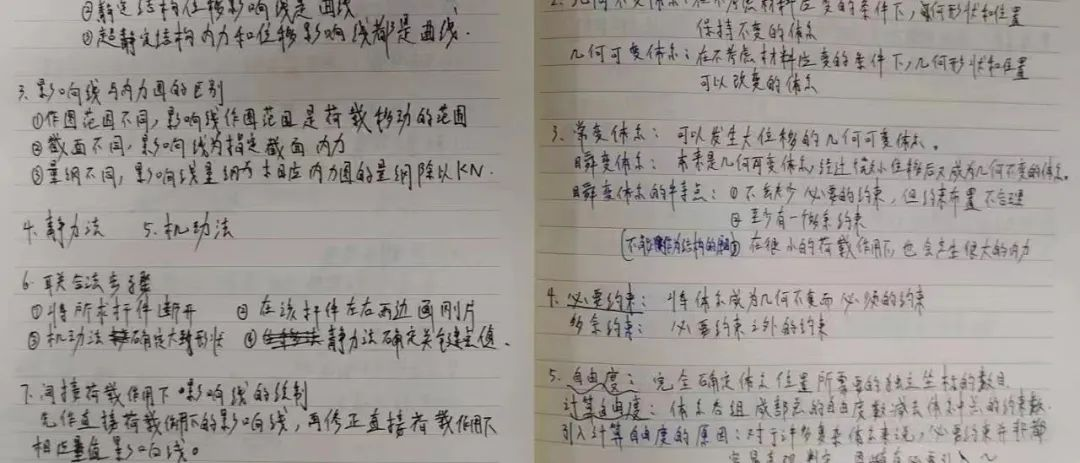 ②静定结构位移影响线是曲线
③超静定结构内力和位移影响线都是曲线.
3.影响线与内力图的区别
①作图范围不同,影响线作图范围是荷载移动的范围
②截面不同,影响线为指定截面内力
③量纲不同,影响线量纲为相应内力图的量纲除以KN.
4.静力法 5.机动法
6.联合法步骤
①将所求杆件断开 ②在该杆件左右两边画刚片
③机动法确定大致形状 ④静力法确定关键定值.
7.间接荷载作用下影响线的绘制
先作直接荷载作用下的影响线,再修正直接荷载作用下
相应量值影响线。
2.几何不变体系:在不考虑材料应变的条件下,几何形状和位置
保持不变的体系
几何可变体系:在不考虑材料应变的条件下,几何形状和位置
可以改变的体系
3.常变体系:可以发生大位移的几何可变体系。
瞬变体系:本来是几何可变体系,经过微小位移后又成为几何不变的体系。
瞬变体系的特点:①不缺少必要的约束,但约束布置不合理
②至少有一个多余约束
(不能作为结构的原因)在很小的荷载作用下,也会产生很大的内力
4.必要约束:将体系成为几何不变而必须的约束
多余约束:必要约束之外的约束
5.自由度:完全确定体系位置所需要的独立坐标的数目
计算自由度:体系各组成部分的自由度数减去体系中总的约束数.
引入计算自由度的原因:对于许多复杂体系来说,必要约束并非都